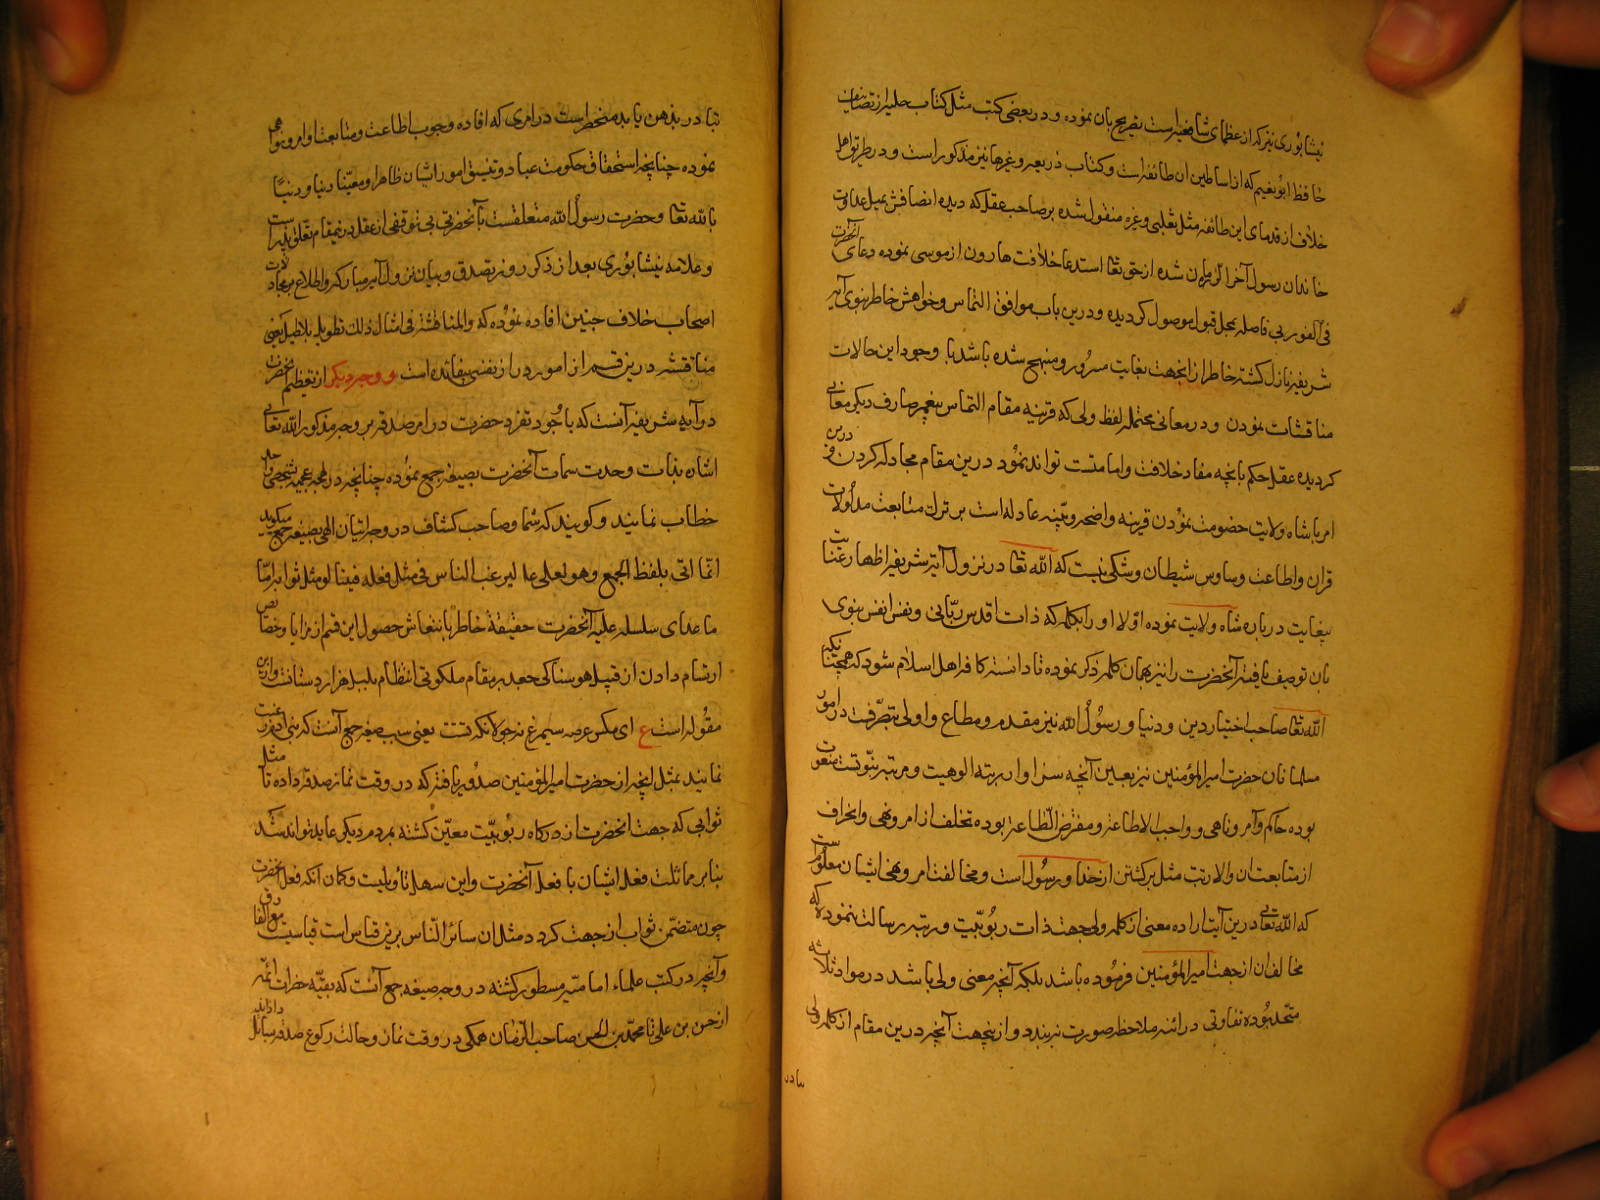 نیشابوری نیز که از عظمای شافعیه است تصریح بان نموده و در بعضی کتب مثل کتاب حلیه از تصانیف
حافظ ابونعیم که از اساطین ان طائفه است و کتاب ذریعه و غیرها نیز مذکور است و در طریق اهل
خلاف از قدمای این طائفه مثل ثعلبی و غیره منقول شده بر صاحب عقل که دیده انصافش بمیل عداوت
خاندان رسول آخر الزمان شده از حق تعا استدعا خلافت هارون از موسی نموده دعای آنحضرت
فی الفور بی فاصله بمحل قبول موصول کردیده و درین باب موافق التماس و خواهش خاطر نبوی آیه
شریفه نازل کشته خاطر از انجهت بغایت مسرور و مبتهج شده باشد با وجود این حالات
مناقشات نمودن و در معانی محتمله لفظ ولی که قرینه مقام التماس پیغمبر صارف دیکر معانی
کردیده عقل حکم بانچه مفاد خلافت و امامتست تواند نمود درین مقام مجادله کردن و درین
امر باشاه ولایت خصومت نمودن قرینه واضحه و بینه عادله است بر ترک متابعت مدلولات
قران و اطاعت وساوس شیطان و شکی نیست که الله تعا در نزول آیه شریفه اظهار عنایت
بیغایت درباره شاه ولایت نموده اولا او را بکلمه که ذات اقدس ربانی و نفس انفس نبوی
بان توصیف یافته آنحضرت را نیز بهمان کلمه ذکر نموده تا دانسته کافه اهل اسلام شود که همچنانکه
الله تعا صاحب اختیار دین و دنیا و رسول الله نیز مقدم و مطاع و اولی بتصرفت در امور
مسلمانان حضرت امیرالمؤمنین نیز بعین آنچه سزاوار رتبه الوهیت و مرتبه نبوتست منعوت
بوده حاکم و آمر و ناهی و واجب الاطاعة و مفترض الطاعة بوده تخلف از امر و نهی و انحراف
از متابعت ان والارتبت مثل برکشتن از خدا و رسول است و مخالفت امر و نهی ایشان معلوم است
که الله تعالی درین آیت اراده معنی از کلمه ولی جهت ذات ربوبیت و رتبه رسالت ننموده که
مخالف ان از جهت امیرالمؤمنین فرموده باشد بلکه آنچه معنی ولی باشد در مواد ثلاثه
متحد بوده تفاوتی در ائنه ملاحظه صورت نه بندد و از ینجهت آنچه درین مقام از کلمه ولی
تبادر
تبادر بذهن یابد منحصر است در امری که افاده وجوب اطاعت و متابعت اوامر و نواهی
نموده چنانچه استحقاق حکومت عباد و تنسیق امور ایشان ظاهرا و معینا دینا و دنییا
بالله تعا و حضرت رسول الله متعلقست بآنحضرتی بی توقفی از عقل درینمقام تعلق پذیر است
و علامه نیشابوری بعد از ذکر روز تصدق و بیان نزول آیه مبارکه و اطلاع بر مجادلات
اصحاب خلاف چنین افاده نموده که والمناقشة فی امثال ذلک تطویل بلاطایل یعنی
مناقشه درین قسم از امور در از نفسی بیفائده است و وجه دیکر از تعظیم آنحضرت
در آیه شریفه آنست که با وجود تفرد حضرت در امر صدقه بر وجه مذکور الله تعالی
اشاره بذات وحدت سمات آنحضرت بصیغه جمع نموده چنانچه در لهجه عجمیه شخص واحد
خطاب نمایند و کویند که شما و صاحب کشاف در وجه اتیان الهی بصیغه جمع میکوید
انما اتی بلفظ الجمع وهو لعلی عا لیرغب الناس فی مثل فعله فینالو مثل ثوابه اما
ماعدای سلسله علیه آنحضرت حقیقة خاطر بانتعاش حصول این قسم از مزایا و خصائص
ارتسام دادن از قبیل هوسناکی جعد بر مقام ملکوتی انتظام بلبل هزار دستانست و ازین
مقوله است ع ای مکس عرصه سیمرغ نه جولانکه تست یعنی سبب صیغه جمع آنست که بنی آدم رغبت
نمایند بمثل آنچه از حضرت امیرالمؤمنین صدور یافته که در وقت نماز صدقه داده تا مثل
ثوابی که جهت آنحضرت از درکاه ربوبیت معین کشته بمردم دیکر عاید تواند شد
بنابر مماثلت فعل ایشان با فعل آنحضرت و این سهل تاویلیت و کمان آنکه فعل آنحضرت
چون متضمن ثواب از جهت کرد مثل ان سائر الناس برین قیاس است قیاسیت مع الفارق
و آنچه در کتب علماء امامیه مسطور کشته در وجه صیغه جمع آنست که بقیه حضرات ائمه
از حسن بن علی تا محمد بن الحسن صاحب الزمان همکی در وقت نماز و حالت رکوع صدقه بسایل داده‌اند